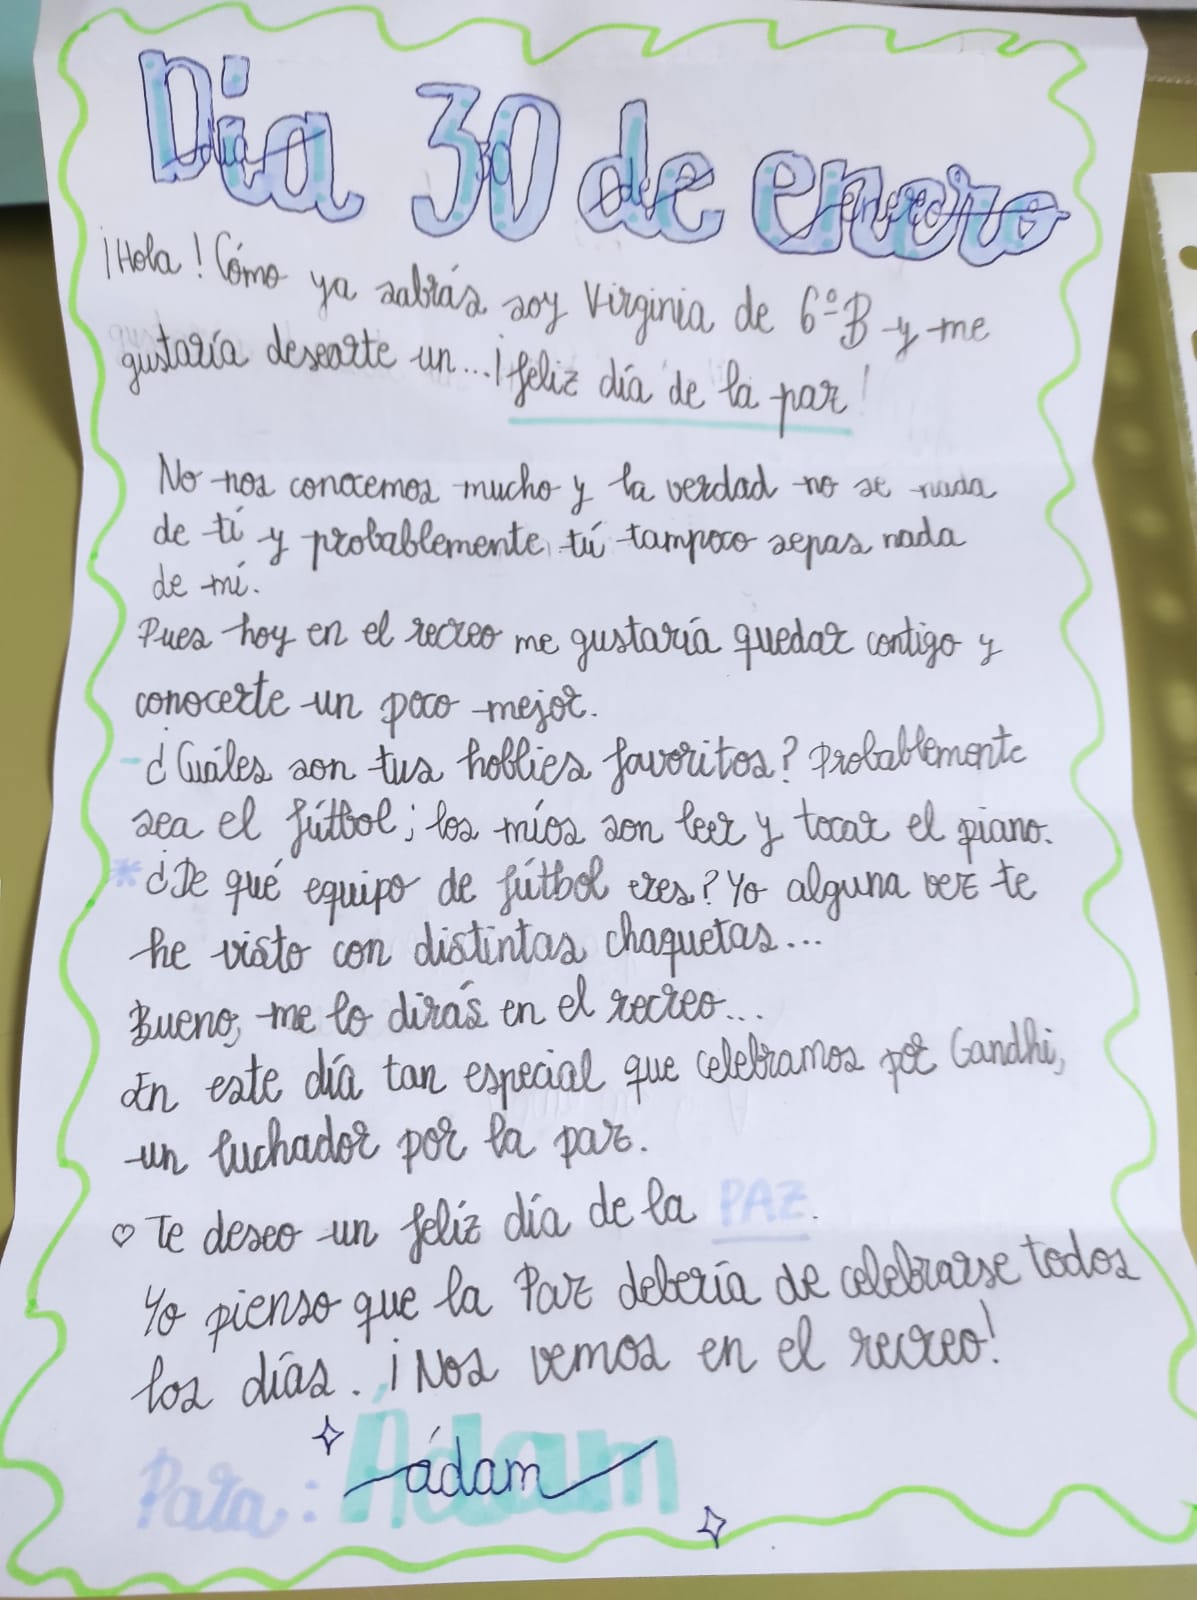 Día 30 de enero
¡Hola! Cómo ya sabrás soy Virginia de 6ºB y me
gustaría desearte un...¡feliz día de la paz!
No nos conocemos mucho y la verdad no se nada
de tí y probablemente tú tampoco sepas nada
de mí.
Pues hoy en el recreo me gustaría quedar contigo y
conocerte un poco mejor.
-¿Cuáles son tus hobbies favoritos? Probablemente
sea el fútbol; los míos son leer y tocar el piano.
*¿De qué equipo de fútbol eres? Yo alguna vez te
he visto con distintas chaquetas...
Bueno, me lo dirás en el recreo...
En este día tan especial que celebramos por Gandhi,
un luchador por la paz.
♡ Te deseo un feliz día de la PAZ.
Yo pienso que la Paz debería de celebrarse todos
los días. ¡Nos vemos en el recreo!
Para: Ádam
ádam